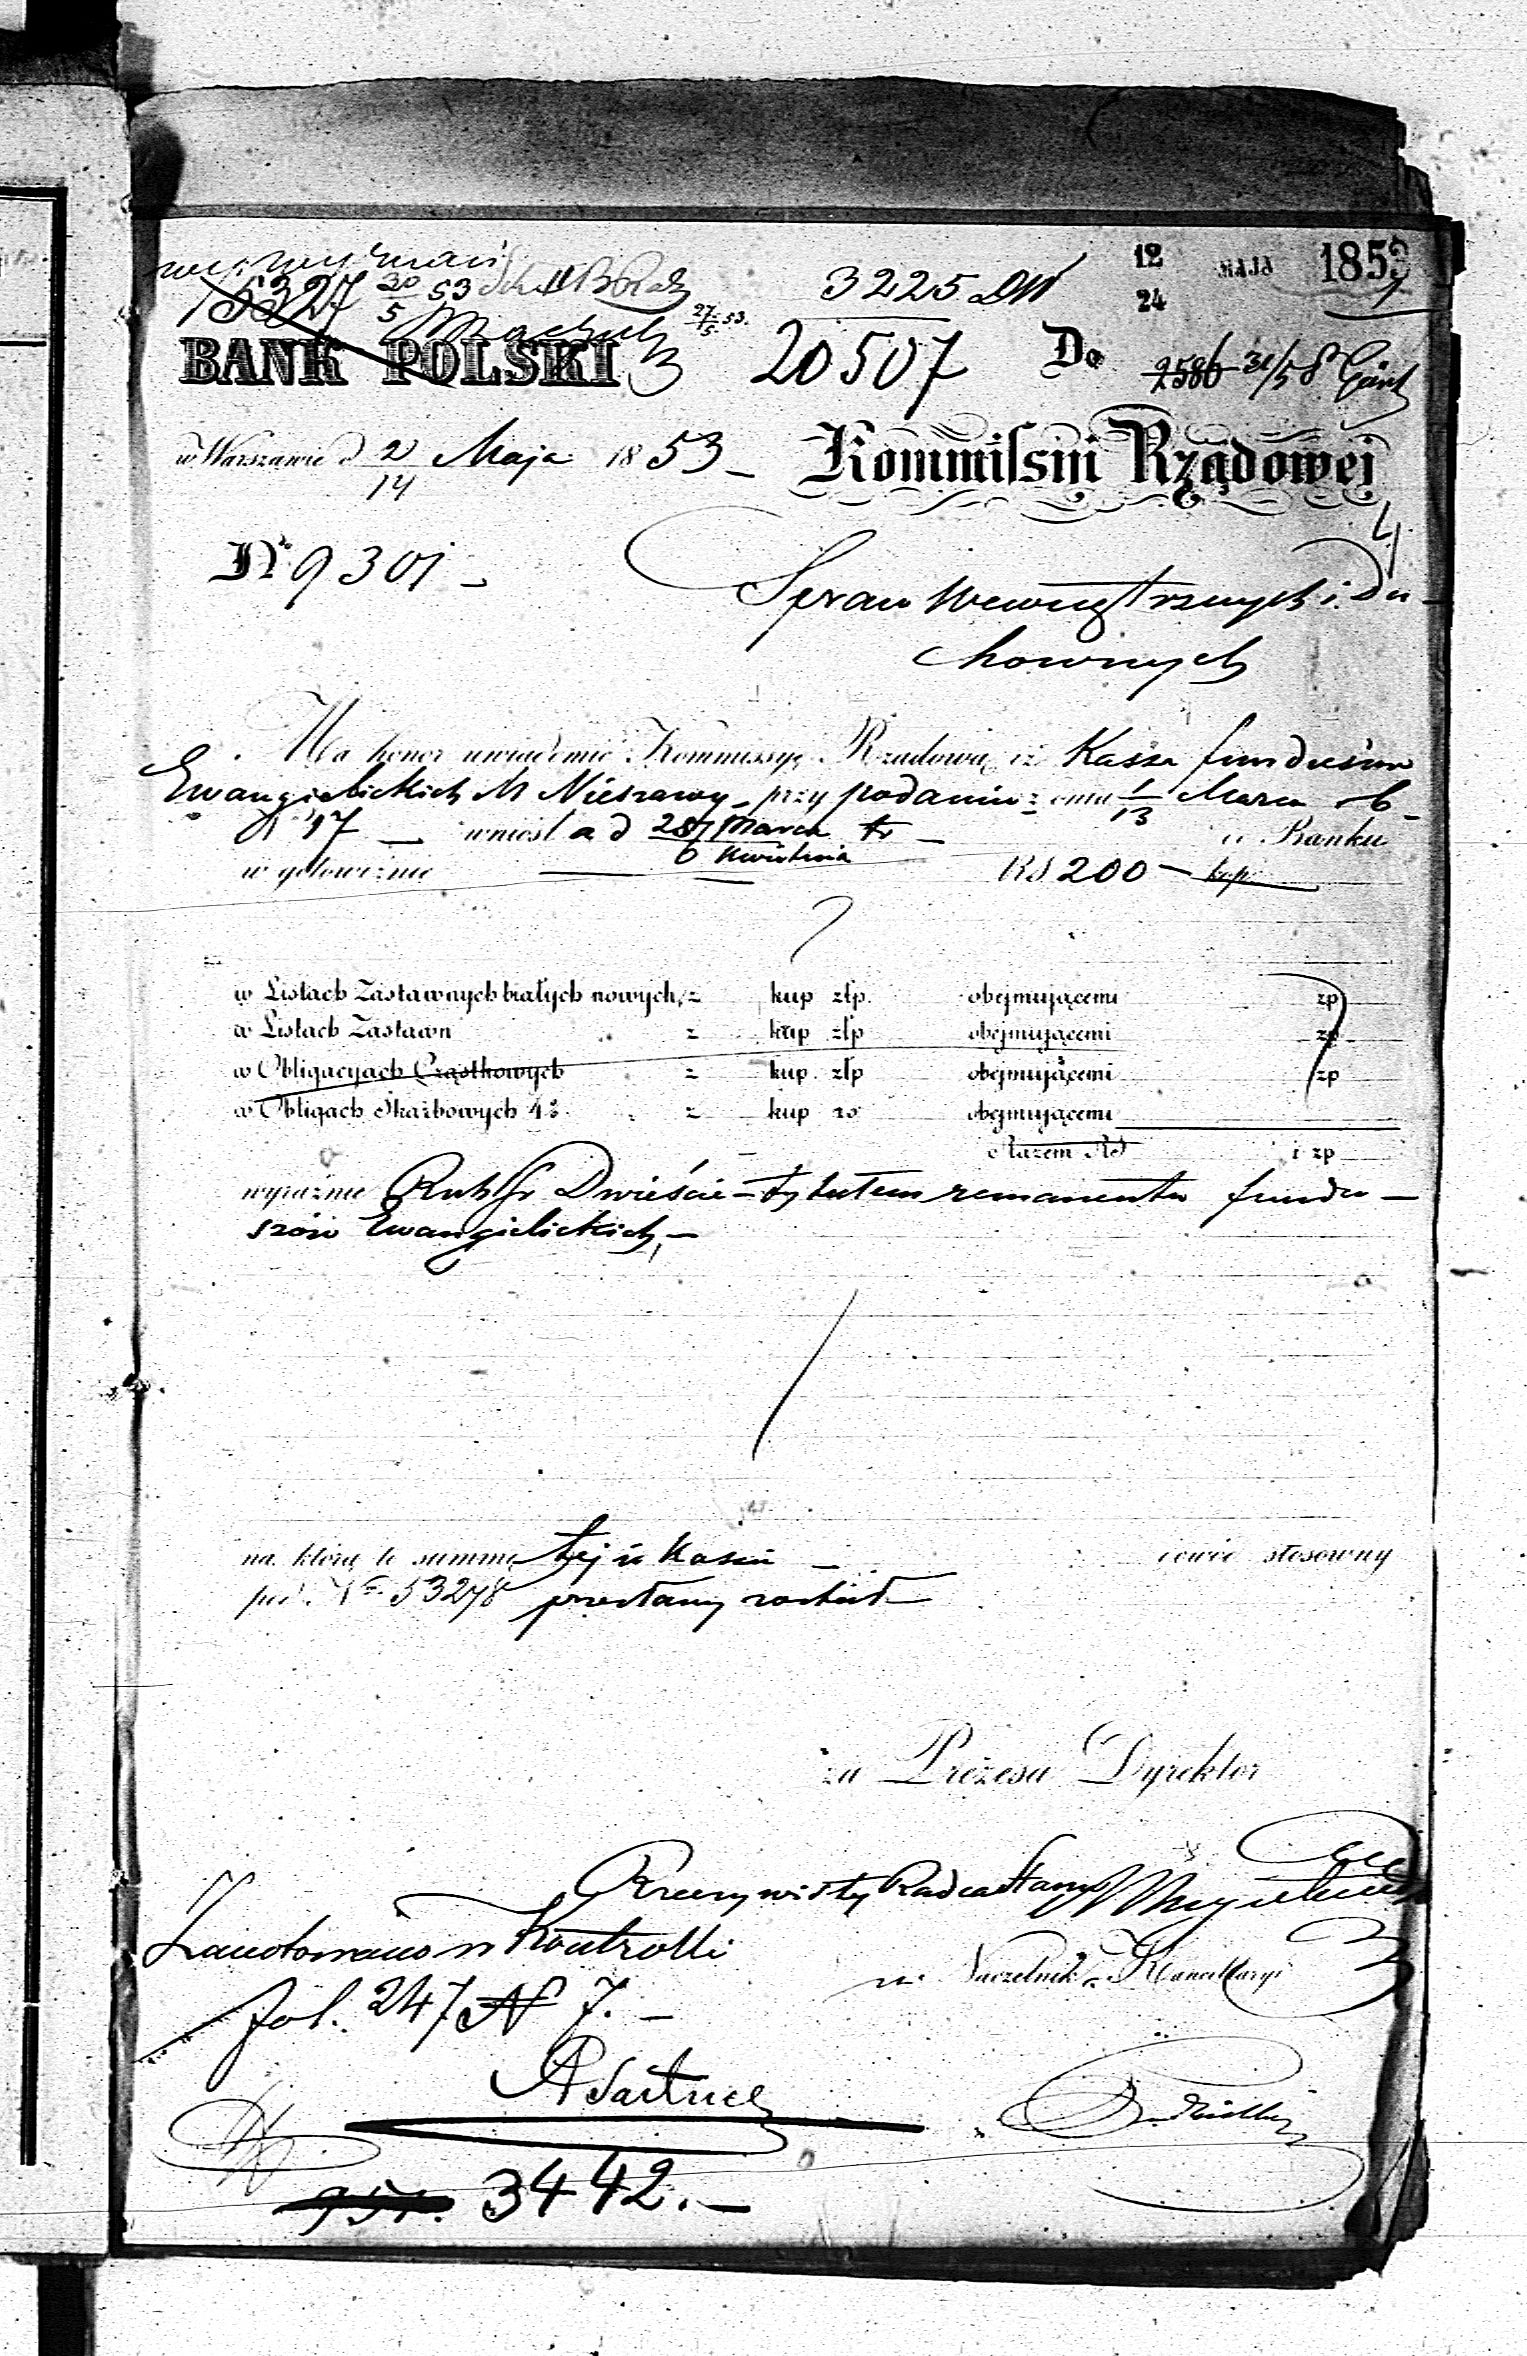 12 MAJA 1853
24
5327 30/5 53
3225 DW
27/5 53.
BANK POLSKI
20507
Do
2586 31/5 8
w Warszawie d 2/14 Maja 1853
Kommissÿi Rządowej
4
Nr 9301
Spraw Wewnętrznych i Du-
chownych
Ma honor uwiadomić Kommissyę Rządową iż Kassa funduszów
Ewangielickich M Nieszawy przy podaniu z dnia 1/13 Marca rb
N 17 wniosła d 28 Marca / 6 Kwietnia tr do Banku
w gotowiźnie RS 200 kop
w Listach Zastawnych białych nowych, z kup złp. obejmującemi zp
w Listach Zastawn z kup złp obejmującemi zp
w Obligacyach Cząstkowych z kup. złp obejmującemi zp
w Obligach Skarbowych 4% z kup rs obejmującemi
Razem RS i zp
wyraźnie Rub Sr Dwieście tytułem remanentu fundu-
szów Ewangielickich,
na którą to summę tejże Kassie dowód stosowny
pod Nr 53278 przesłany został
za Prezesa Dyrektor
Rzeczywisty Radca Stanu
Zanotowano w Kontrolli
fol. 247 N 7.
Naczelnik Kancellaryi
3442.